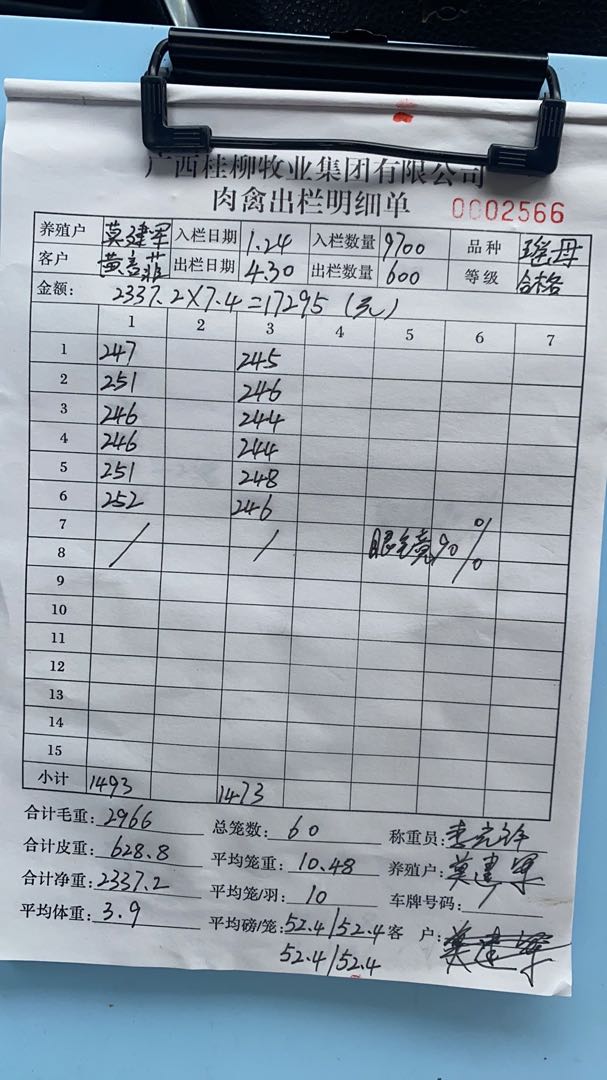 广西桂柳牧业集团有限公司
肉禽出栏明细单 0002566
养殖户 莫建军 入栏日期 1.24 入栏数量 9700 品种 瑶母
客户 出栏日期 4.30 出栏数量 600 等级 合格
金额: 2337.2×7.4=17295(元)
1 2 3 4 5 6 7
1 247 245
2 251 246
3 246 244
4 246 244
5 251 248
6 252 246
7 /
8 / 眼镜90%
9
10
11
12
13
14
15
小计 1493 1473
合计毛重: 2966 总笼数: 60 称重员:
合计皮重: 628.8 平均笼重: 10.48 养殖户: 莫建军
合计净重: 2337.2 平均笼/羽: 10 车牌号码: /
平均体重: 3.9 平均磅/笼: 52.4/52.4 客户: 莫建军
52.4/52.4